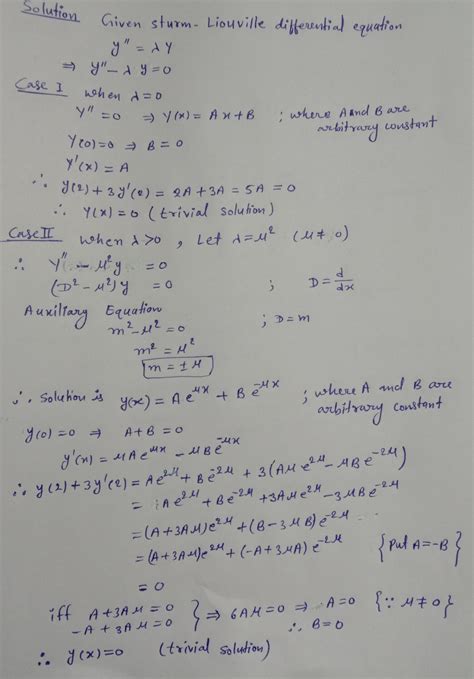 Solution Given sturm-Liouville differential equation
y'' = λ y
⇒ y'' - λ y = 0
Case I when λ=0
y'' = 0 ⇒ y(x) = Ax+B ; where A and B are arbitrary constant
y(0)=0 ⇒ B = 0
y'(x) = A
∴ y(2)+3y'(2) = 2A+3A = 5A = 0
∴ y(x) = 0 (trivial solution)
Case II when λ>0 , Let λ=μ² (μ ≠ 0)
∴ y'' - μ²y = 0
(D² - μ²) y = 0 ; D = d/dx
Auxiliary Equation ; D = m
m² - μ² = 0
m² = μ²
m = ± μ
∴ Solution is y(x) = A e^{μx} + B e^{-μx} ; where A and B are arbitrary constant
y(0) = 0 ⇒ A+B = 0
y'(x) = μA e^{μx} - μB e^{-μx}
∴ y(2)+3y'(2) = A e^{2μ} + B e^{-2μ} + 3(Aμ e^{2μ} - μB e^{-2μ})
= A e^{2μ} + B e^{-2μ} + 3Aμ e^{2μ} - 3μB e^{-2μ}
= (A+3Aμ)e^{2μ} + (B-3μB) e^{-2μ}
= (A+3Aμ)e^{2μ} + (-A+3μA) e^{-2μ} {Put A=-B}
= 0
iff A+3Aμ = 0
-A+3Aμ = 0 } ⇒ 6Aμ = 0 ⇒ A=0 {∵ μ≠0}
∴ B=0
∴ y(x)=0 (trivial solution)